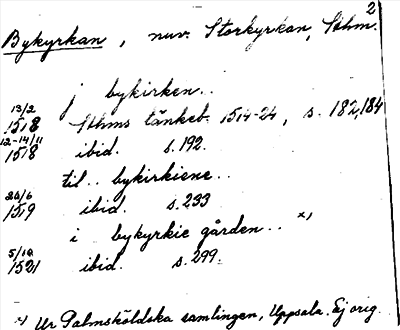 2
Bykyrkan, nuv. Storkyrkan, Sthm.
i bykirken..
13/2
1518 Sthms tänkeb. 1514-24, s. 182, 184
12-14/11
1518 ibid. s. 192.
til.. bykirkiene..
26/6
1519 ibid. s. 233
i bykyrkie gården.. x)
5/10
1521 ibid. s. 299.
x) Ur Palmsköldska samlingen, Uppsala. Ej orig.